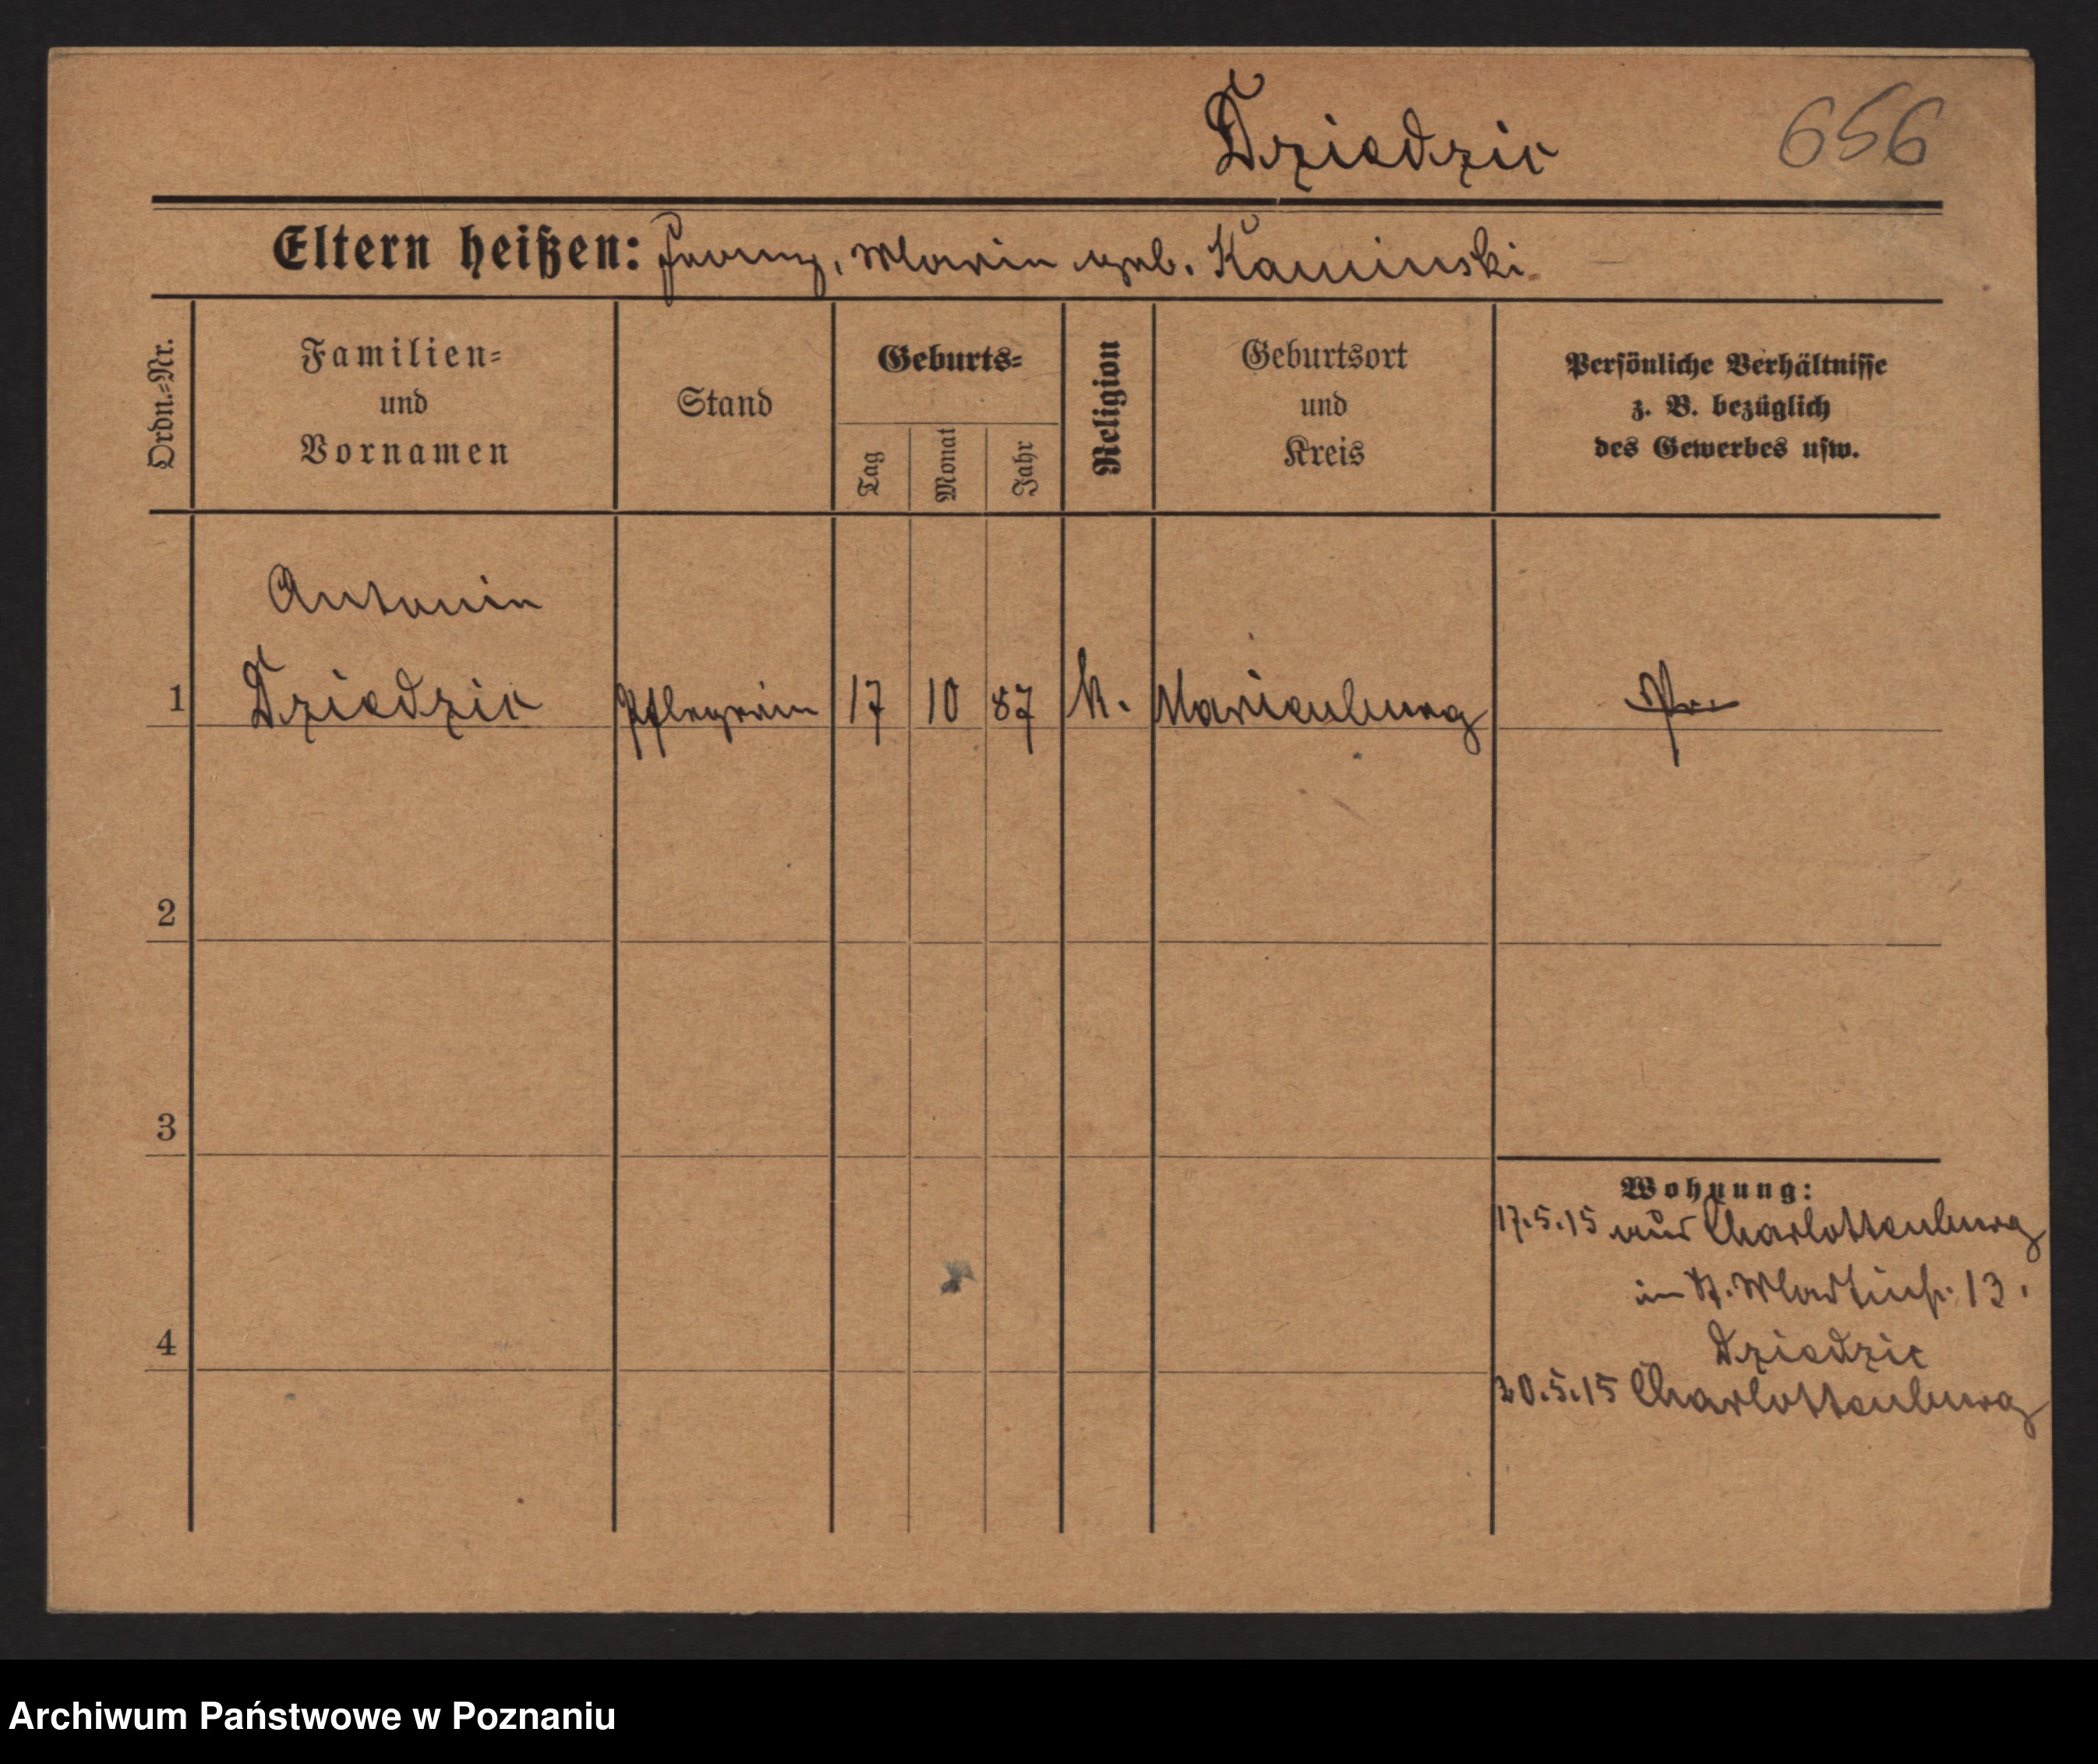 Dziedzic 656
Eltern heißen: Franz, Maria geb. Kaminski
Ordn.=Nr.
Familien=
und
Vornamen
Stand
Geburts=
Tag
Monat
Jahr
Religion
Geburtsort
und
Kreis
Persönliche Verhältnisse
z. B. bezüglich
des Gewerbes usw.
Antonie
1 Dziedzic Pflegerin 17 10 87 k. Marienburg Pr.
2
3
4
Wohnung:
17.5.15 aus Charlottenburg
in St. Martinstr. 13.
Dziedzic
20.5.15 Charlottenburg
Archiwum Państwowe w Poznaniu